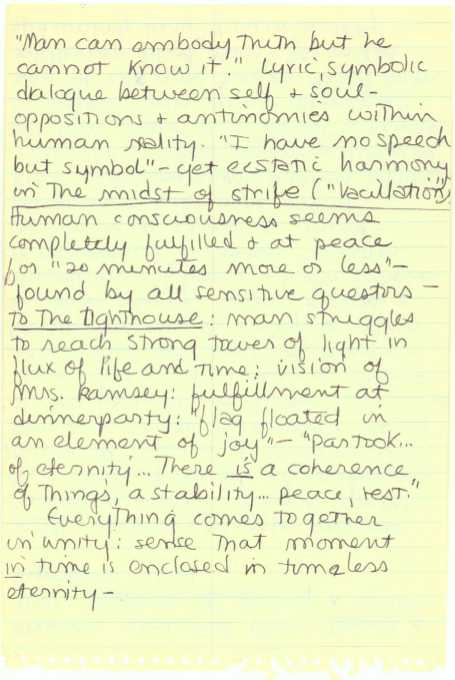 "Man can embody Truth but he
cannot know it." Lyric, symbolic
dialogue between self + soul -
oppositions + antinomies within
human reality. "I have no speech
but symbol" - yet ecstatic harmony
in The midst of strife ("Vacillation")
Human consciousness seems
completely fulfilled & at peace
for "20 minutes more or less" -
found by all sensitive questors -
To The Lighthouse: man struggles
to reach strong tower of light in
flux of life and Time; vision of
Mrs. Ramsey: fulfillment at
dinnerparty: "flag floated in
an element of joy" - "Partook...
of eternity... There is a coherence
of Things, a stability... peace, rest."
Everything comes Together
in unity: sense That moment
in time is enclosed in timeless
eternity -